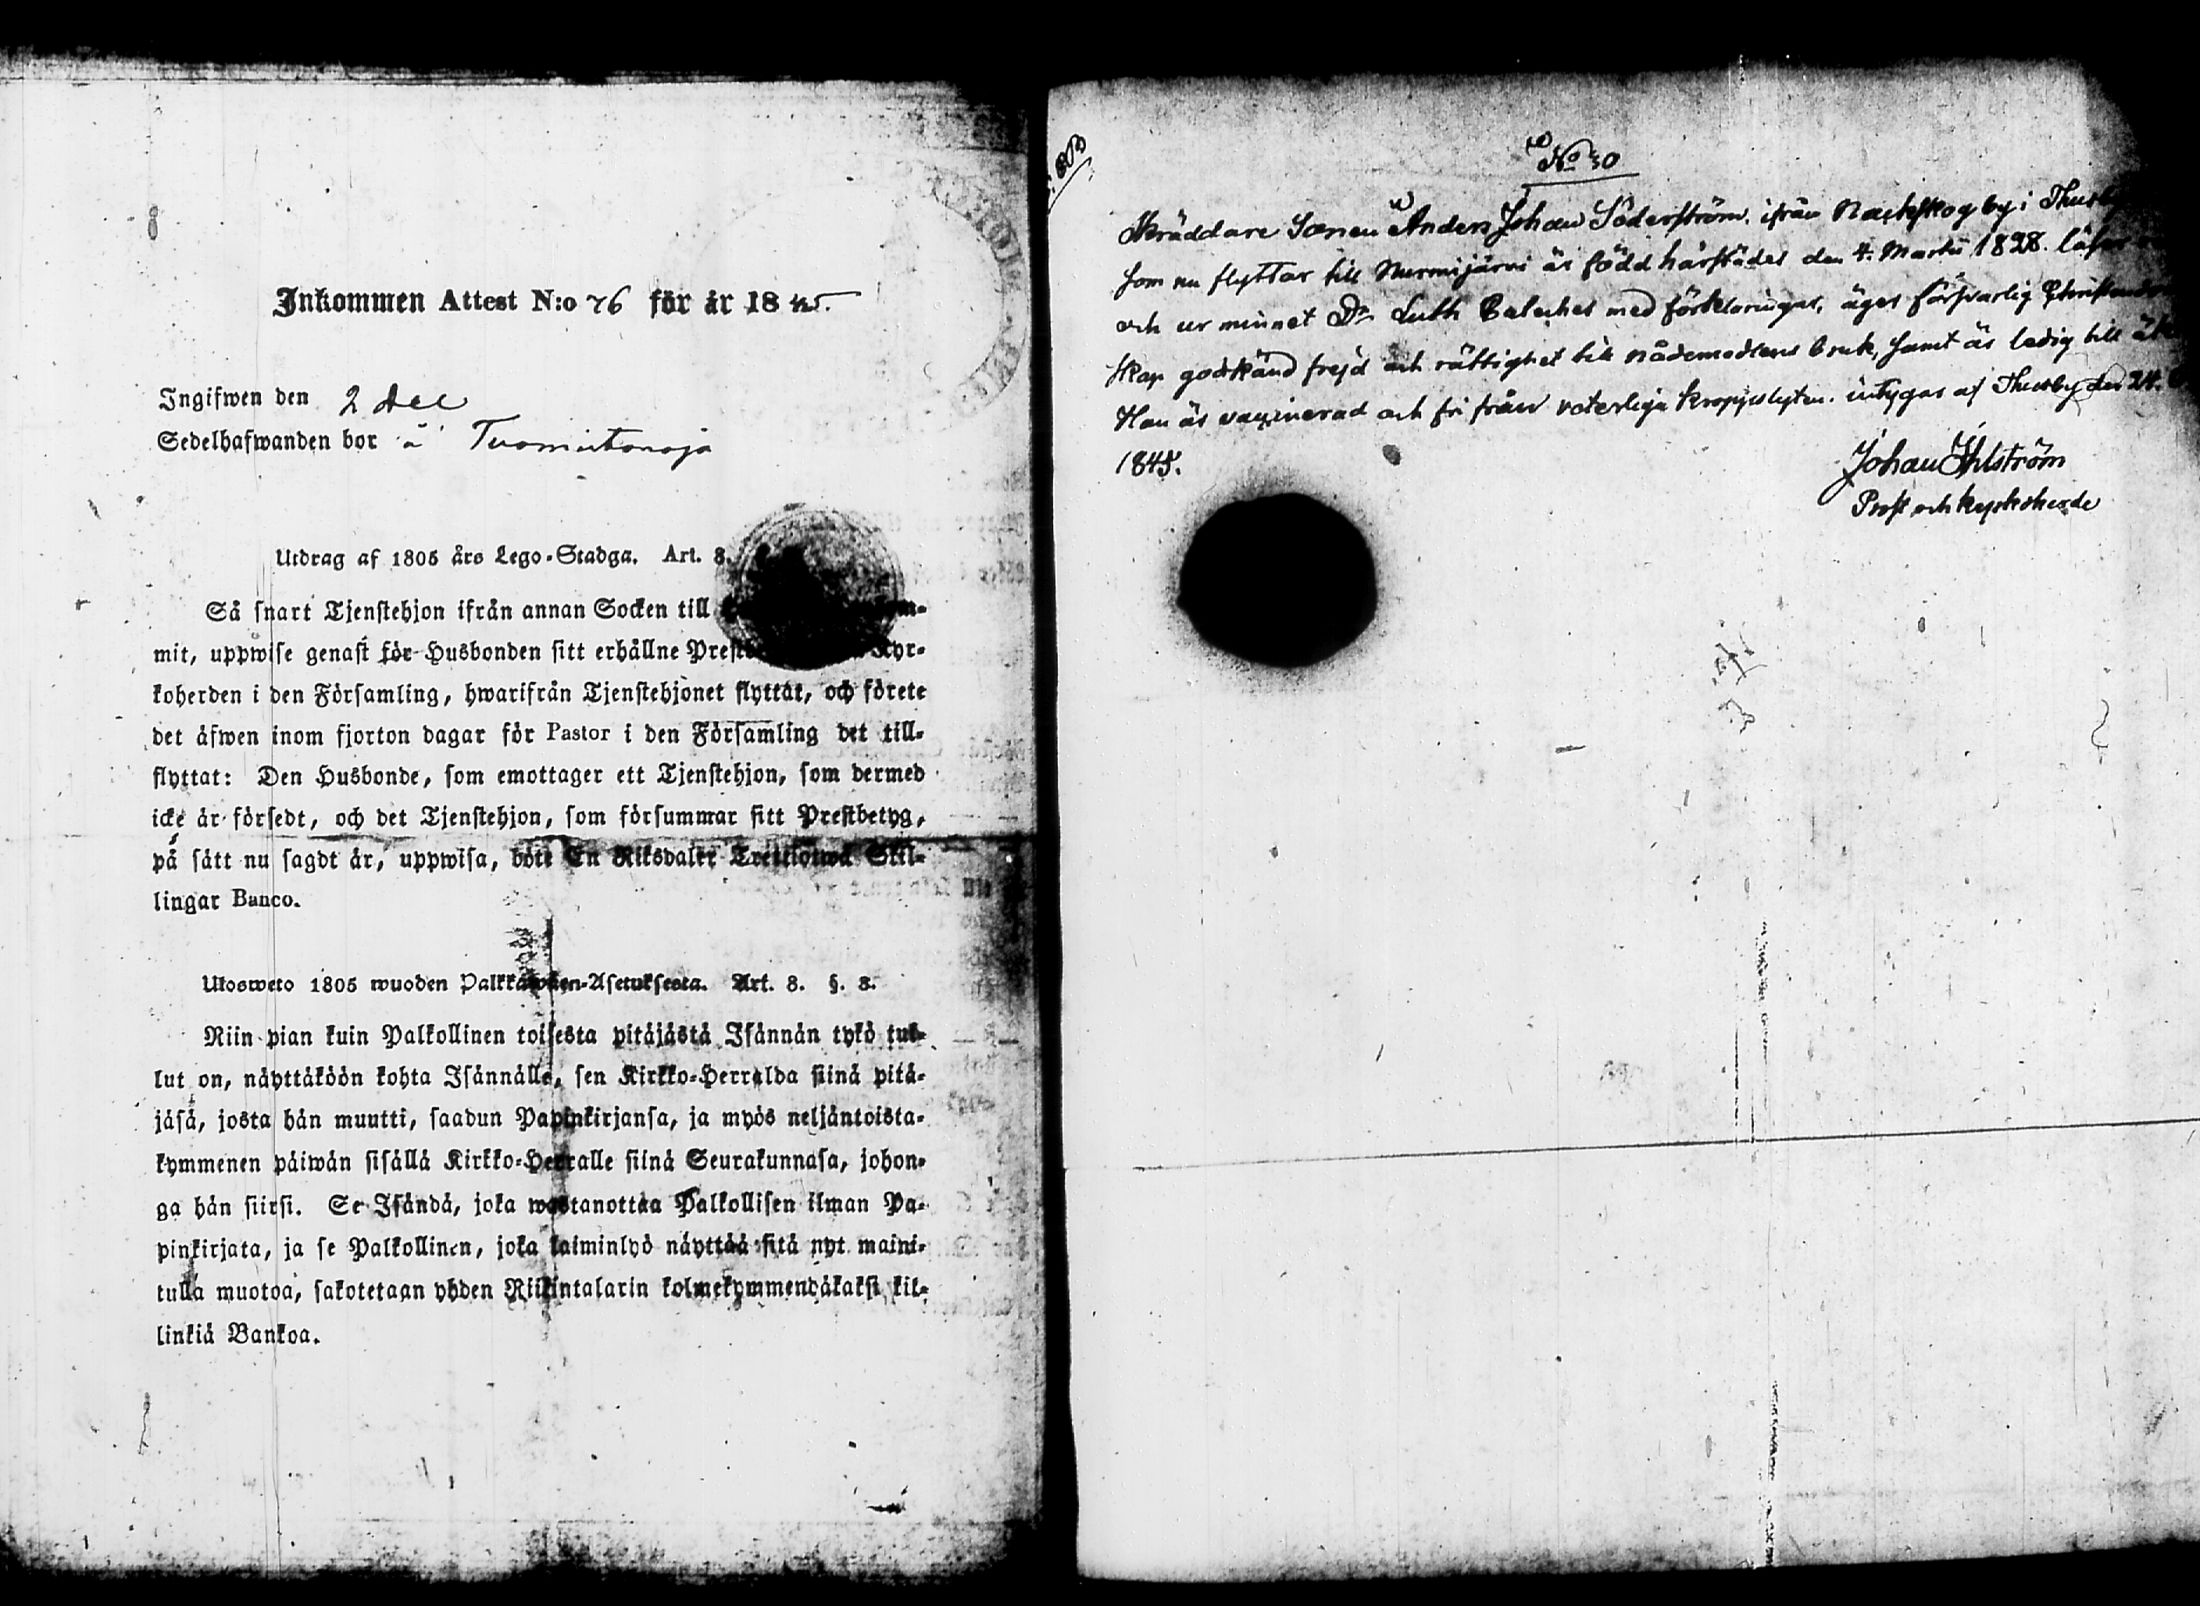 Inkommen Attest N:o 76 för år 1845.
Ingifwen den 2 Dec
Sedelhafwanden bor å Tuomistonoja
Utdrag af 1805 års Lego-Stadga. Art. 8.
Så snart Tjenstehjon ifrån annan Socken till
mit, uppwise genast för Husbonden sitt erhållne Kyr-
koherden i den Församling, hwarifrån Tjenstehjonet flyttat, och förete
det äfwen inom fjorton dagar för Pastor i den Församling det till-
flyttat: Den Husbonde, som emottager ett Tjenstehjon, som dermed
icke är försedt, och det Tjenstehjon, som försummar sitt Prestbetyg,
på sätt nu sagdt är, uppwisa, böte En Riksdaler Trettiotwå Skil-
lingar Banco.
Ulosweto 1805 wuoden Palkkawäen-Asetuksesta. Art. 8. §. 8.
Niin pian kuin Palkollinen toisesta pitäjästä Isännän tykö tul-
lut on, näyttäköön kohta Isännälle, sen Kirkko-Herralda siinä pitä-
jäsä, josta hän muutti, saadun Papinkirjansa, ja myös neljäntoista-
kymmenen päiwän sisällä Kirkko-Herralle siinä Seurakunnasa, johon-
ga hän siirsi. Se Isändä, joka wastanottaa Palkollisen ilman Pa-
pinkirjata, ja se Palkollinen, joka laiminlyö näyttää sitä nyt maini-
tulla muotoa, sakotetaan yhden Riikintalarin kolmekymmendäkaksi kil-
linkiä Bankoa.
No 30
Skräddare Sonen Anders Johan Söderström ifrån Nackskog by i Thusby
som nu flyttar till Nurmijärvi är född härstädes den 4. Martii 1828. läser
och ur minnet Dr Luth Cateches med förklaringar, äger försvarlig
skap godkänd frejd och rättighet till nådemedlens bruk, samt är ledig till
Han är vaccinerad och fri från veterliga kroppslyten. intygas af Thusby den 24.
1845.
Johan Ahlström
Prost och kyrkoherde